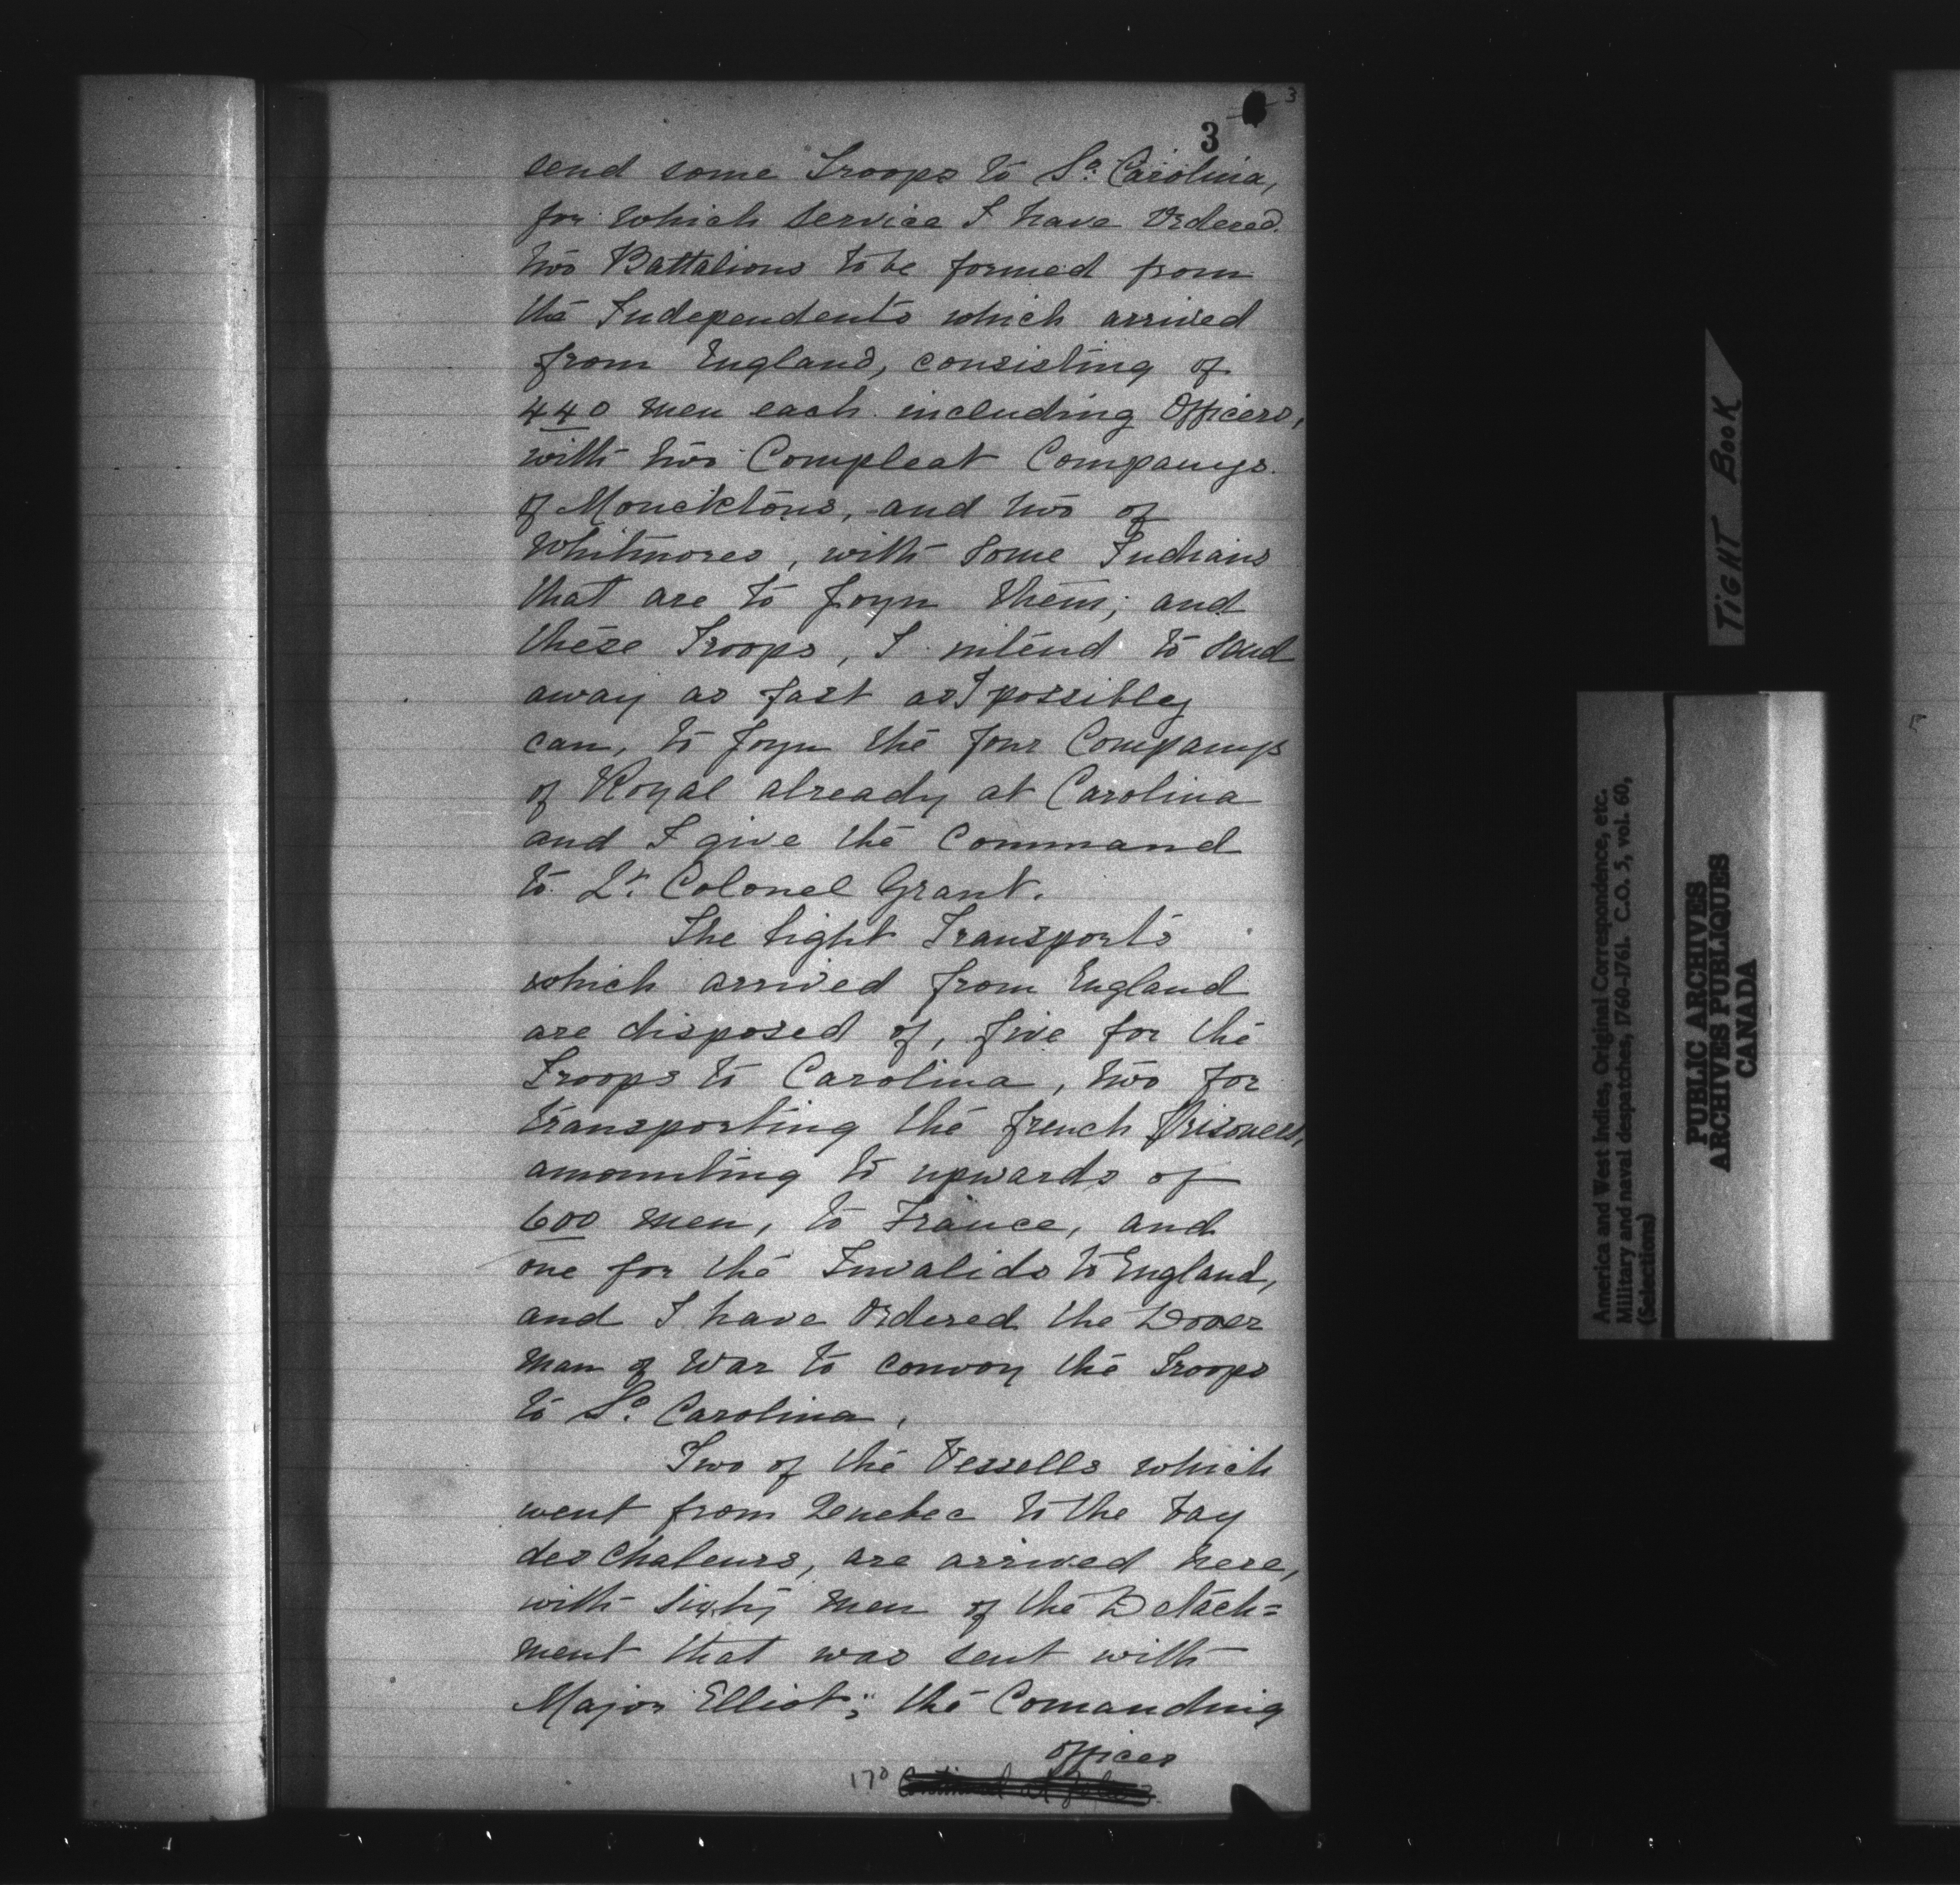 3
3
send some Troops to So. Carolina,
for which service I have Ordered
two Battalions to be formed from
the Independents which arrived
from England, consisting of
440 men each including Officers,
with two Compleat Companys
of Moncktons, and two of
Whitmores, with some Indians
that are to joyn them; and
these Troops, I intend to send
away as fast as I possibly
can, to joyn the four Companys
of Royal already at Carolina
and I give the Command
to Lt. Colonel Grant.
The Eight Transports
which arrived from England
are disposed of, five for the
Troops to Carolina, two for
transporting the french Prisoners,
amounting to upwards of
600 men, to France, and
one for the Invalids to England,
and I have Ordered the Dover
man of War to convoy the Troops
to So. Carolina.
Two of the Vessells which
went from Quebec to the bay
des Chaleurs, are arrived here,
with sixty men of the Detach=
ment that was sent with
Major Elliot; the Comanding
officer
170
TIGHT BOOK
America and West Indies, Original Correspondence, etc.
Military and naval despatches, 1760-1761. C.O. 5, vol. 60,
(Selections)
PUBLIC ARCHIVES
ARCHIVES PUBLIQUES
CANADA